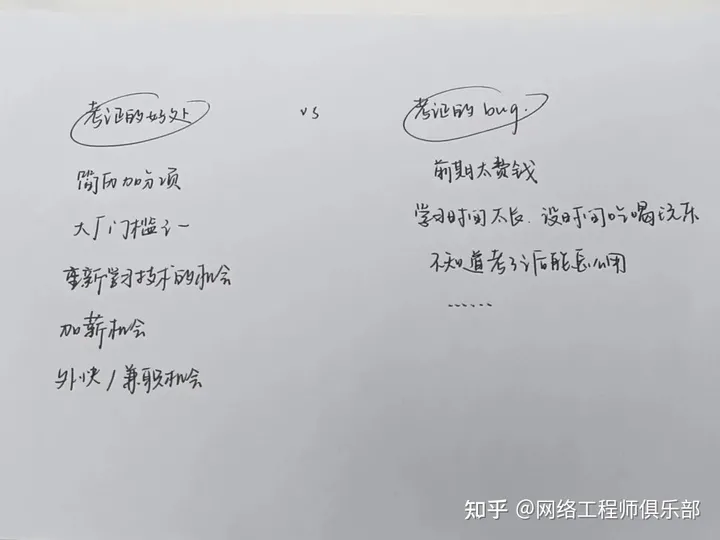 考证的好处
vs
考证的bug.
简历加分项
大厂门槛之一
重新学习技术的机会
加薪机会
外快/兼职机会
前期太费钱
学习时间太长.没时间吃喝玩乐
不知道考了证后能怎么用
......
知乎 @网络工程师俱乐部